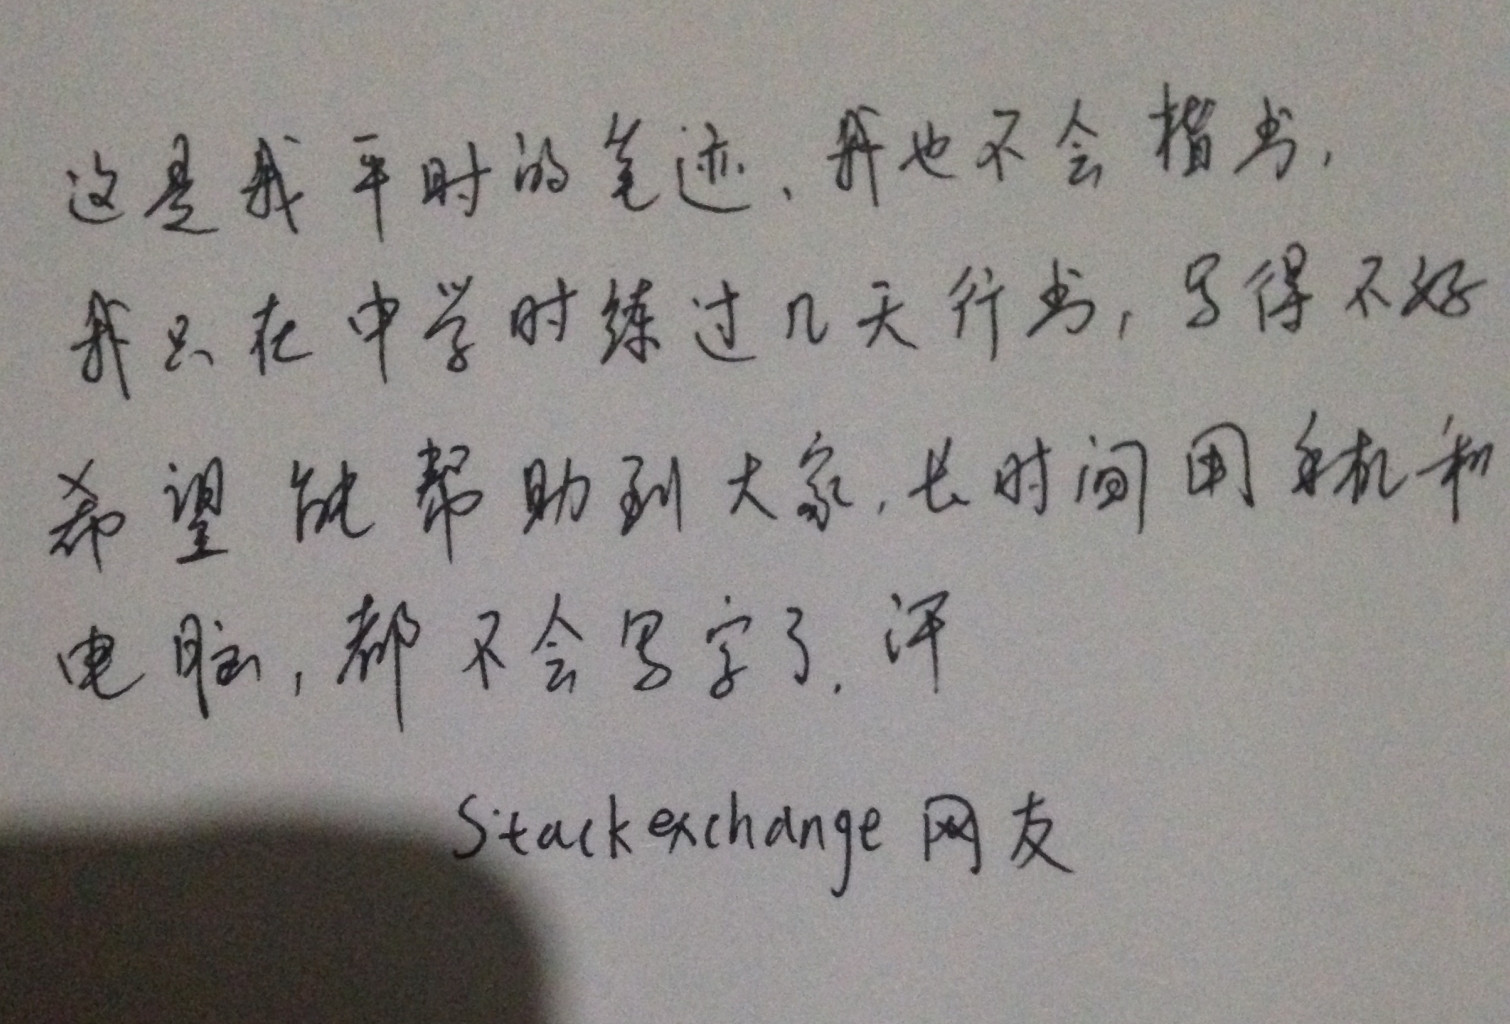 这是我平时的笔迹、我也不会楷书,
我只在中学时练过几天行书,写得不好
希望能帮助到大家.长时间用手机和
电脑,都不会写字了.汗
Stackexchange 网友